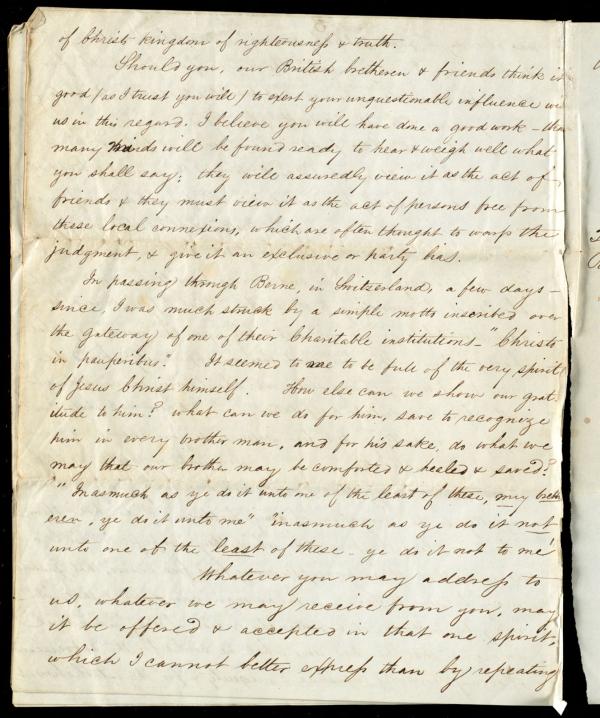 of Christs kingdom of righteousness & truth.
Should you, our British bretheren & friends think it
good (as I trust you will) to exert your unquestionable influence
us in this regard. I believe you will have done a good work -
many minds will be found ready to hear & weigh well what
you shall say; they will assuredly view it as the act of
friends & they must view it as the act of persons free from
these local connexions, which are often thought to warp the
judgment, & give it an exclusive or party bias.
In passing through Berne, in Switzerland, a few days -
since, I was much struck by a simple motto inscribed over
the gateway of one of their Charitable institutions - "Christo
in pauperibus". It seemed to me to be full of the very spirit
of Jesus Christ himself. How else can we show our grat
itude to him? what can we do for him, save to recognize
him in every brother man, and for his sake, do what we
may that our brother may be comforted & healed & saved?
"Inasmuch as ye do it unto one of the least of these, my breth
eren, ye do it unto me" "inasmuch as ye do it not
unto one of the least of these - ye do it not to me!
Whatever you may address to
us, whatever we may receive from you, may
it be offered & accepted in that one spirit,
which I cannot better express than by repeating